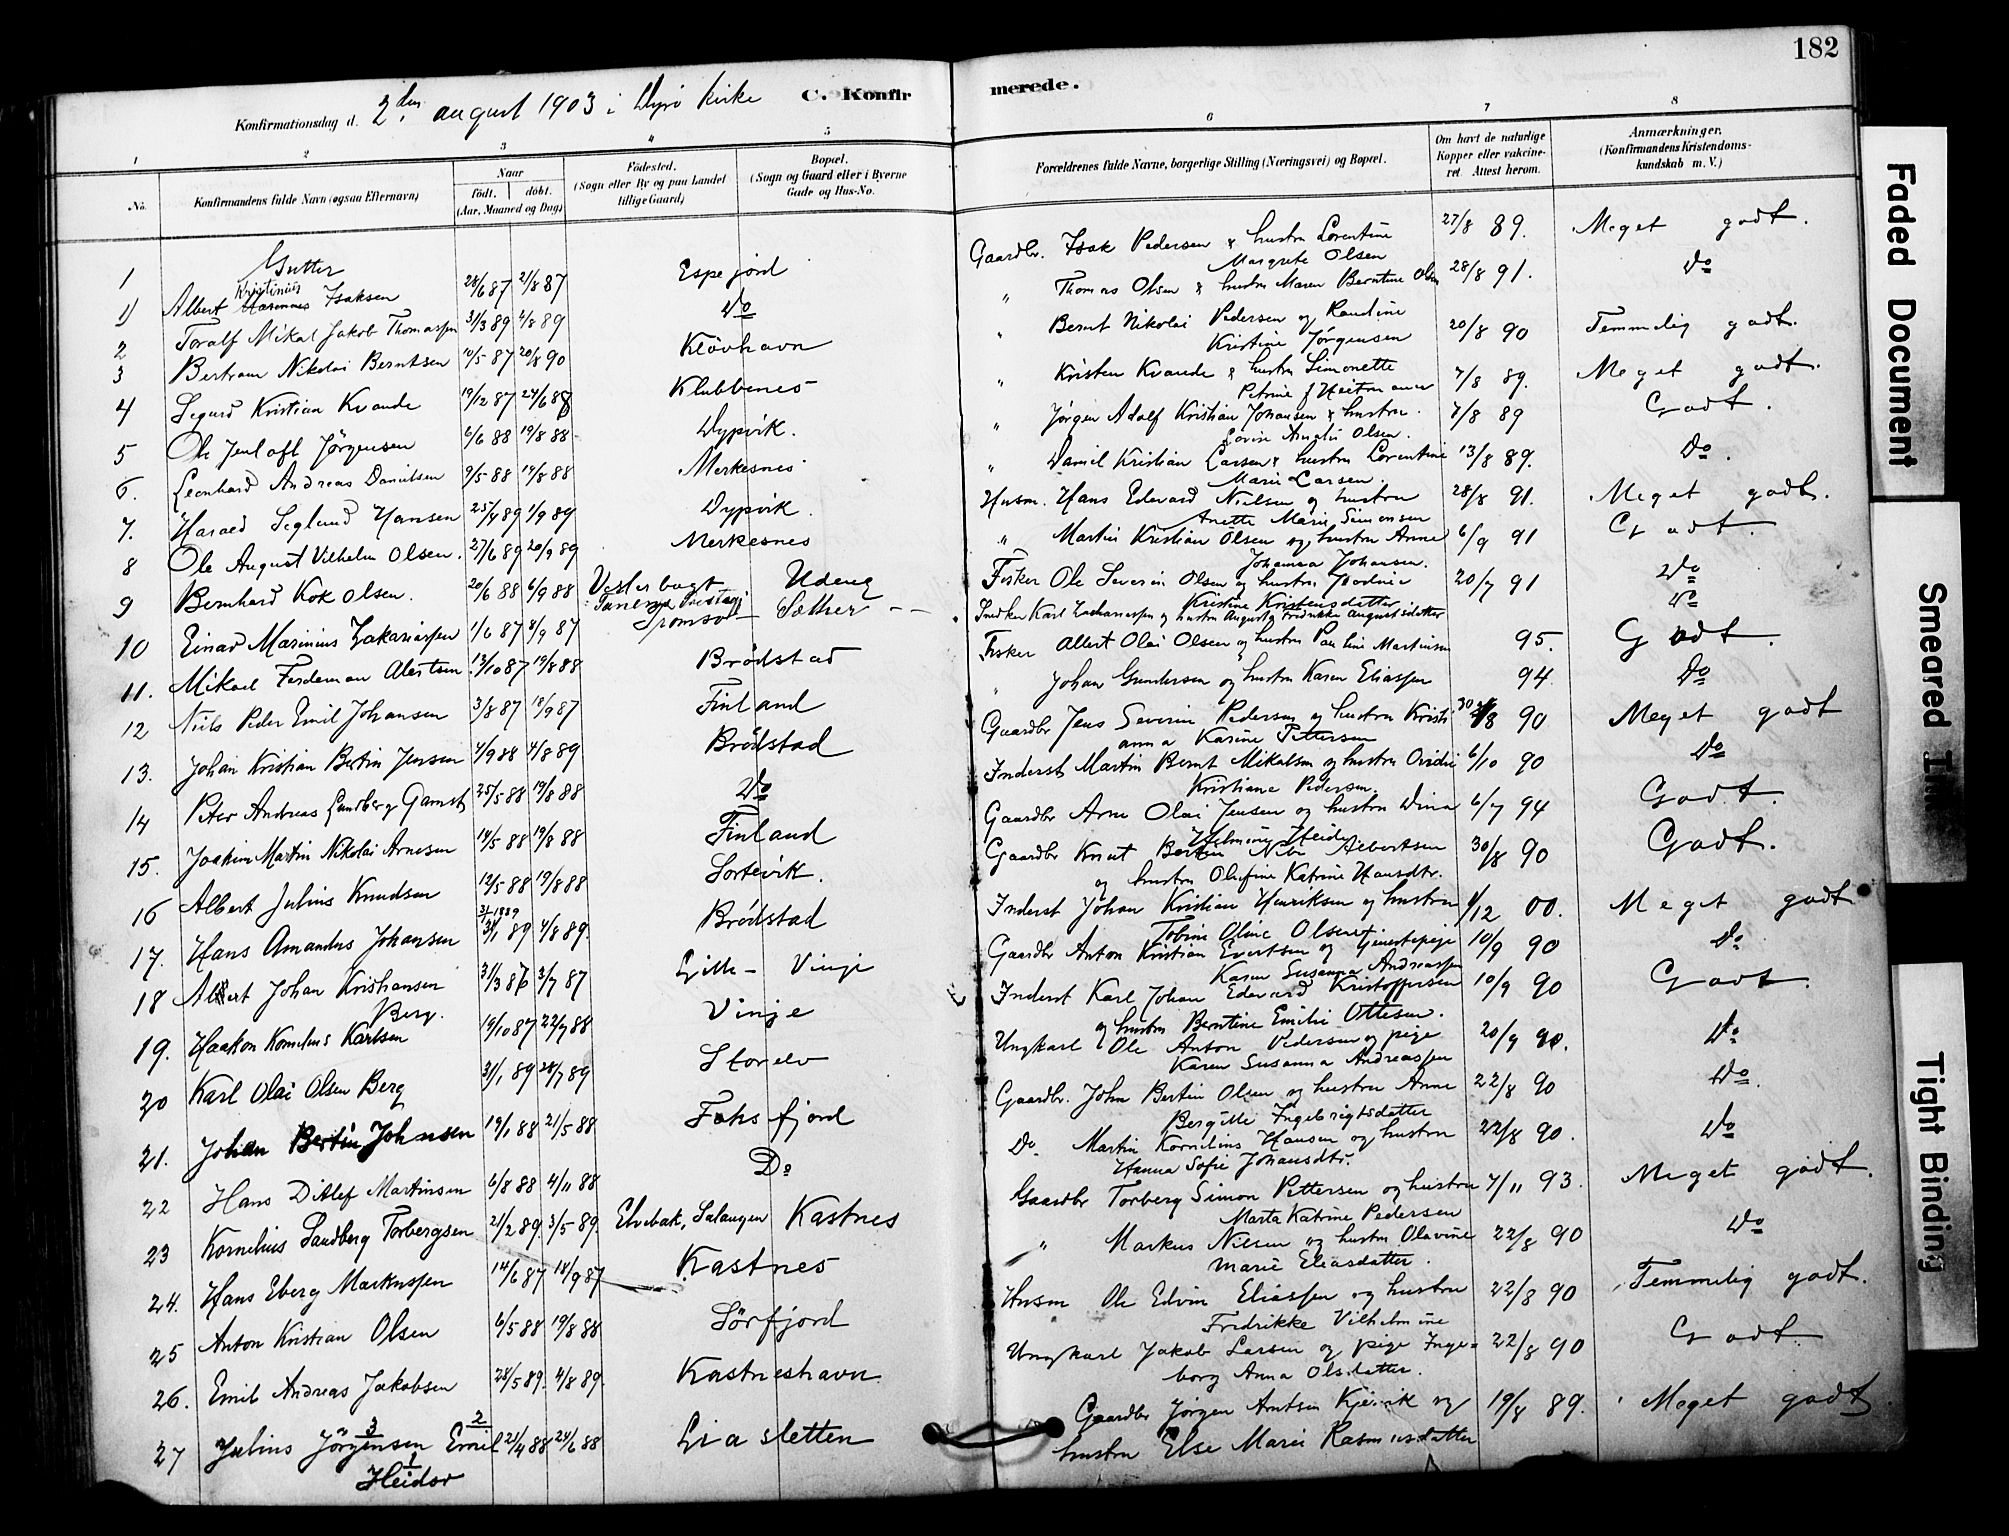 182
Konfirmationsdag d. 2den august 1903 i Dyrö kirke C. Konfirmerede.
1 2 3 4 5 6 7 8
No. Konfirmandens fulde Navn (ogsaa Efternavn)
Naar födt. döbt. (Aar, Maaned og Dag)
Födested. (Sogn eller By og paa Landet tillige Gaard)
Bopæl. (Sogn og Gaard eller i Byerne Gade og Hus-No.
Forældrenes fulde Navne, borgerlige Stilling (Næringsvei) og Bopæl.
Om havt de naturlige Kopper eller vakcineret. Attest herom.
Anmærkninger. (Konfirmandens Kristendomskundskab m. V.)
Gutter
1 Albert Kristinus Isaksen 21/8 87 Espejord Gaardbr. Isak Pedersen & hustru Lorentine Margrete Olsen 27/8 89. Meget godt.
2 Toralf Mikal Jakob Thomassen 31/3 89 4/8 89 Do " Thomas Olsen & hustru Maren Berntine Olsen 28/8 91. Do
3 Bertram Nikolai Berntsen 10/5 87 20/8 90 Klövhavn " Bernt Nikolai Pedersen og Kristine Jørgensen 20/8 90 Temmelig godt.
4 Sigurd Kristian Kvande 19/12 87 24/6 88 Klubbenes " Kristen Kvande & hustru Simonette Petrine f Heitmann 7/8 89. Meget godt.
5 Ole Jentoft Jörgensen 6/6 88 19/8 88 Dypvik. " Jørgen Adolf Kristian Johansen & hustru Lovise Amalie Olsen. 7/8 89 Godt.
6. Leonhard Andreas Danielsen 9/5 88 19/8 88 Merkesnes " Daniel Kristian Larsen & hustru Lorentine Marie Larsen. 13/8 89. Do.
7. Harald Seglund Hansen 25/4 89 1/9 89 Dypvik. Husm. Hans Edevard Nielsen og hustru Anette Marie Simonsen 28/8 91. Meget godt.
8 Ole August Vilhelm Olsen. 27/6 89 20/9 89 Merkesnes " Martin Kristian Olsen og hustru Anne Johanna Johansen. 6/9 91 Godt.
9 Bernhard Kok Olsen. 20/6 88 6/9 88 Vesterbugt Udeng Fisker Ole Severin Olsen og hustru Kristine Kristensdatter 20/7 91 Do
10 Einar Marinius Zakariassen 1/6 87 8/9 87 Tromsö Sæther Karl Zachariassen og hustru Augusta Fredrikke Augustsdatter Do
11. Mikael Ferdeman 13/10 87 19/8 88 Brödstad Fisker Albert Olai Olsen og hustru Pauline Martinsen 95. Godt.
12 Nils Peder Emil Johansen 3/8 87 18/9 87 Finland " Johan Gundersen og hustru Karen Eliassen 94 Do
13. Johan Kristian Bertin Jensen 4/9 88 4/8 89 Brödstad Gaardbr Jens Severin Pedersen og hustru Kristianna Karine Pettersen 90 Meget godt
14 Peter Andreas Lundberg Gamst 25/5 88 19/8 88 Do Inderst Martin Bernt Mikalsen og hustru Ovidie Kristiane Pedersen. 6/10 90 Do
15. Joakim Martin Nikolai Arnesen 14/5 88 19/8 88 Finland Gaardbr Arne Olai Jensen og hustru Dina 6/7 94 Godt.
16 Albert Julius Knudsen 12/5 88 19/8 88 Sortevik. Gaardbr Knut Albertsen og hustru Olufine Katrine Hansdtr. 30/8 90 Godt.
17. Hans Amandus Johansen 31/1 1889 31/1 89 4/8 89. Brödstad Inderst Johan Kristian Henriksen og hustru Tobine Oline Olsen 1/12 00. Meget godt
18 Albert Johan Kristiansen Berg. 31/3 86 3/7 87 Lille-Vinje Gaardbr Anton Kristian Evertsen og Karen Susanna Andreassen 10/9 90 Do
19. Haakon Kornelius Karlsen 19/10 87 22/7 88 Vinje Inderst Karl Johan Edevard Kristoffersen og hustru Berntine Emilie Ottesen. 10/9 90 Godt.
20 Karl Olai Olsen Berg 31/1 89 28/7 89 Storelv Ungkarl Ole Anton Pedersen og pige Karen Susanna Andreassen 20/9 90. Do
21. Johan Bertin Johnsen 19/1 88 21/5 88 Faksfjord Gaardbr. John Bertin Olsen og hustru Anne Bergitte Ingebrigtsdatter 22/8 90 Do.
22 Hans Ditlef Martinsen 6/8 88 4/11 88 Do Do Martin Kornelius Hansen og hustru Hanna Sofie Johansdtr. 22/8 90. Do
23 Kornelius Sandberg Torbergsen 21/2 89. 3/5 89. Elvebak, Salangen Kastnes Gaardbr Torberg Simon Pettersen og hustru Marta Katrine Pedersen 7/11 93. Meget godt.
24. Hans Eberg Markussen 14/6 87 18/9 87 Kastnes " Markus Nilsen og hustru Olavine Marie Eliasdatter. 22/8 90 Do
25 Anton Kristian Olsen 6/5 88 19/8 88 Sörfjord Husm Ole Edvin Eliassen og hustru Fredrikke Vilhelmine 22/8 90 Temmelig godt.
26. Emil Andreas Jakobsen 28/5 89. 4/8 89. Kastneshavn Ungkarl Jakob Larsen og pige Ingeborg Anna Olsdatter. 22/8 90 Godt.
27 Julius Jörgensen Emil Heidar 21/4 88 24/6 88 Liasletten Gaardbr Jörgen Arntsen Kjervik og hustru Else Marie Rasmusdatter 19/8 89. Meget godt
Faded Document
Smeared Ink
Tight Binding